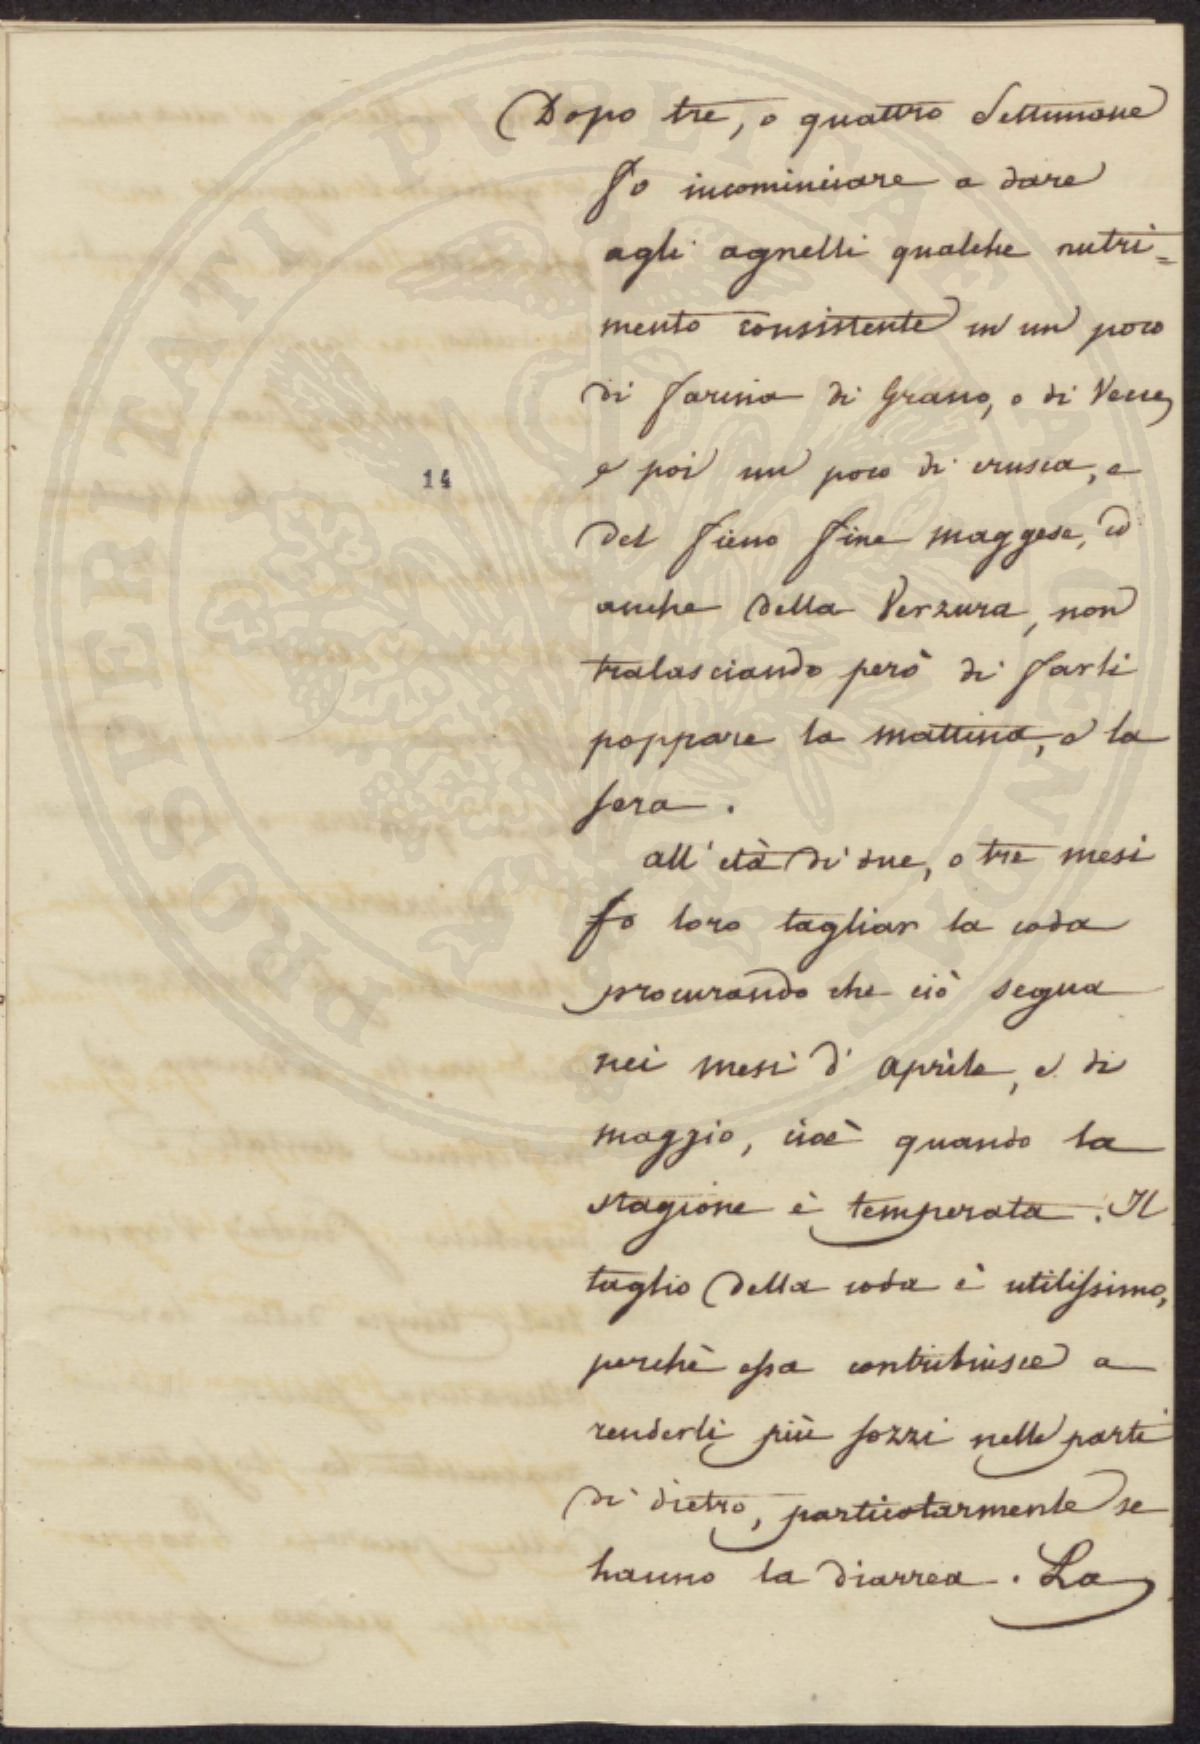 PROSPERITATI PUBLICAE AUGENDAE
14
Dopo tre, o quattro Settimane
fo incominciare a dare
agli agnelli qualche nutri=
mento consistente in un poco
di farina di Grano, o di Vecce,
e poi un poco di crusca, e
del fieno fine maggese, ed
anche della Verzura, non
tralasciando però di farli
poppare la mattina, e la
sera.
all'età di due, o tre mesi
fo loro tagliar la coda
procurando che ciò segua
nei mesi d'aprile, e di
maggio, cioè quando la
stagione è temperata. Il
taglio della coda è utilissimo,
perchè essa contribuisce a
renderli più sozzi nelle parti
di dietro, particolarmente se
hanno la diarrea. La